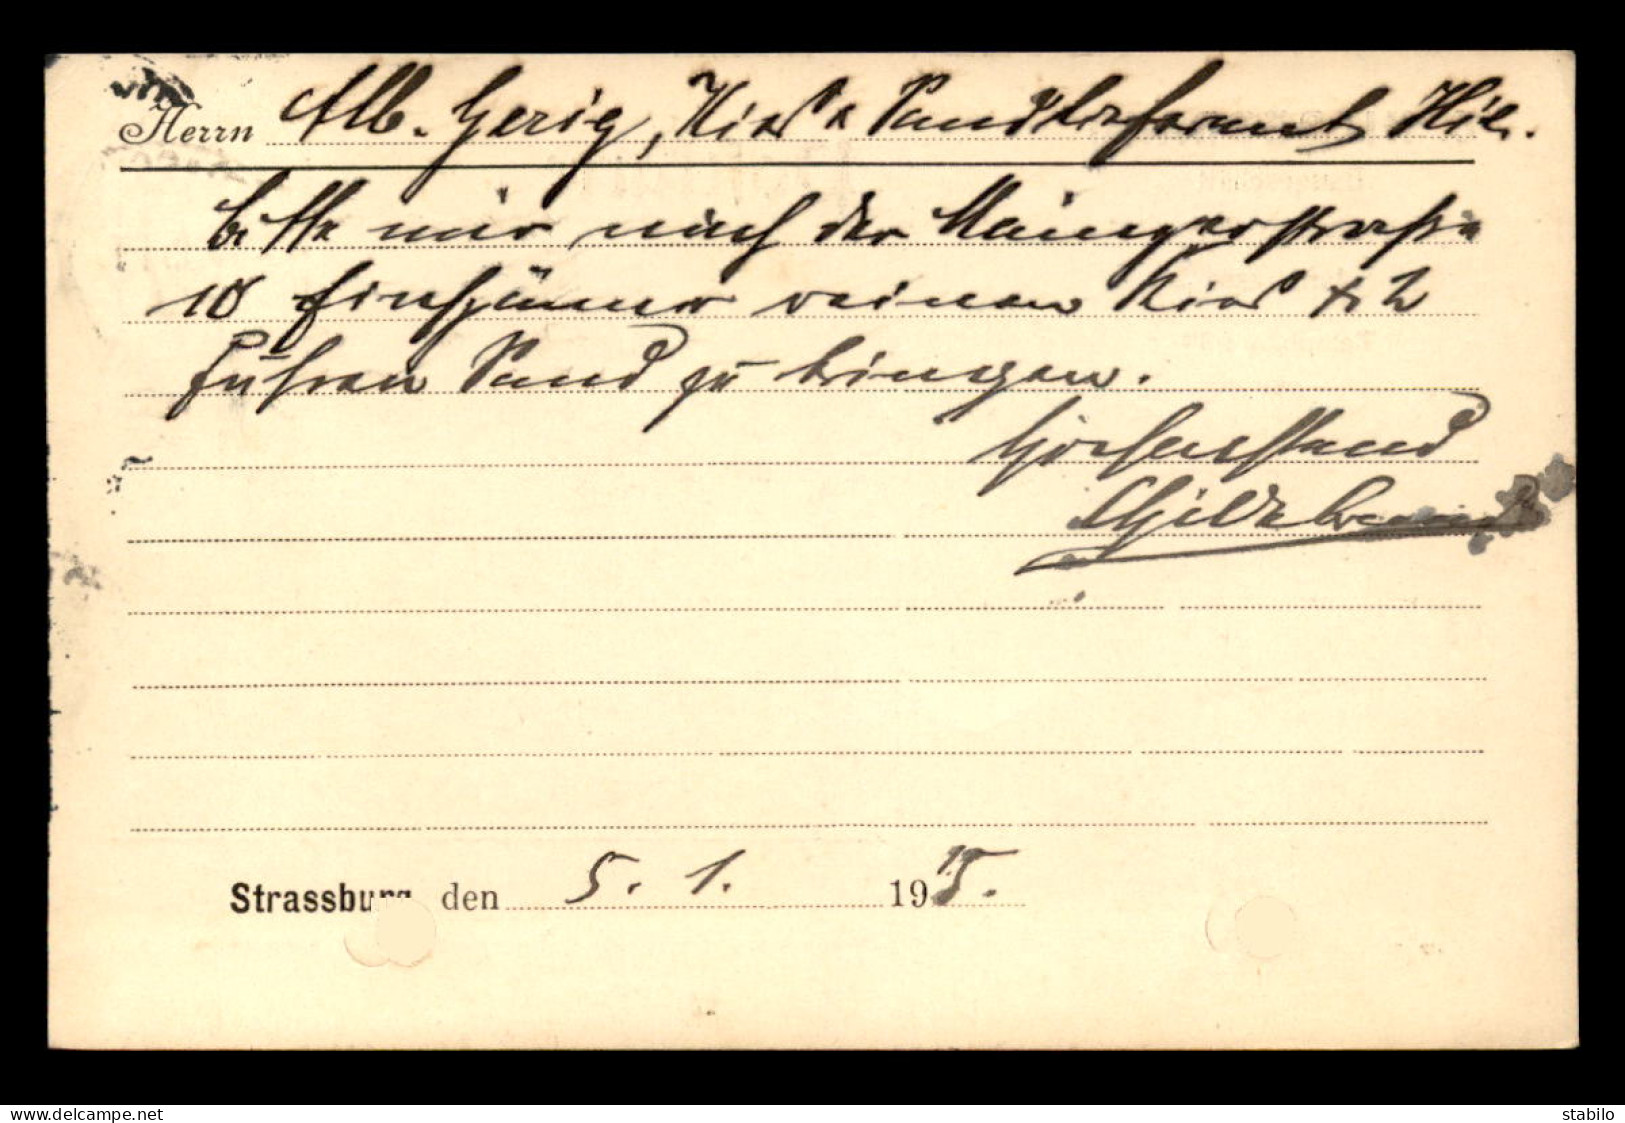 Herrn Alb. Gerig, Kies & Sandlieferant, Hier.
bitte mir nach der Mainzerstrasse
10 Einspänner reinen Kies & 2
Fuhren Sand zu bringen.
Hochachtend
Strassburg, den 5. 1. 1915.
www.delcampe.net
stabilo